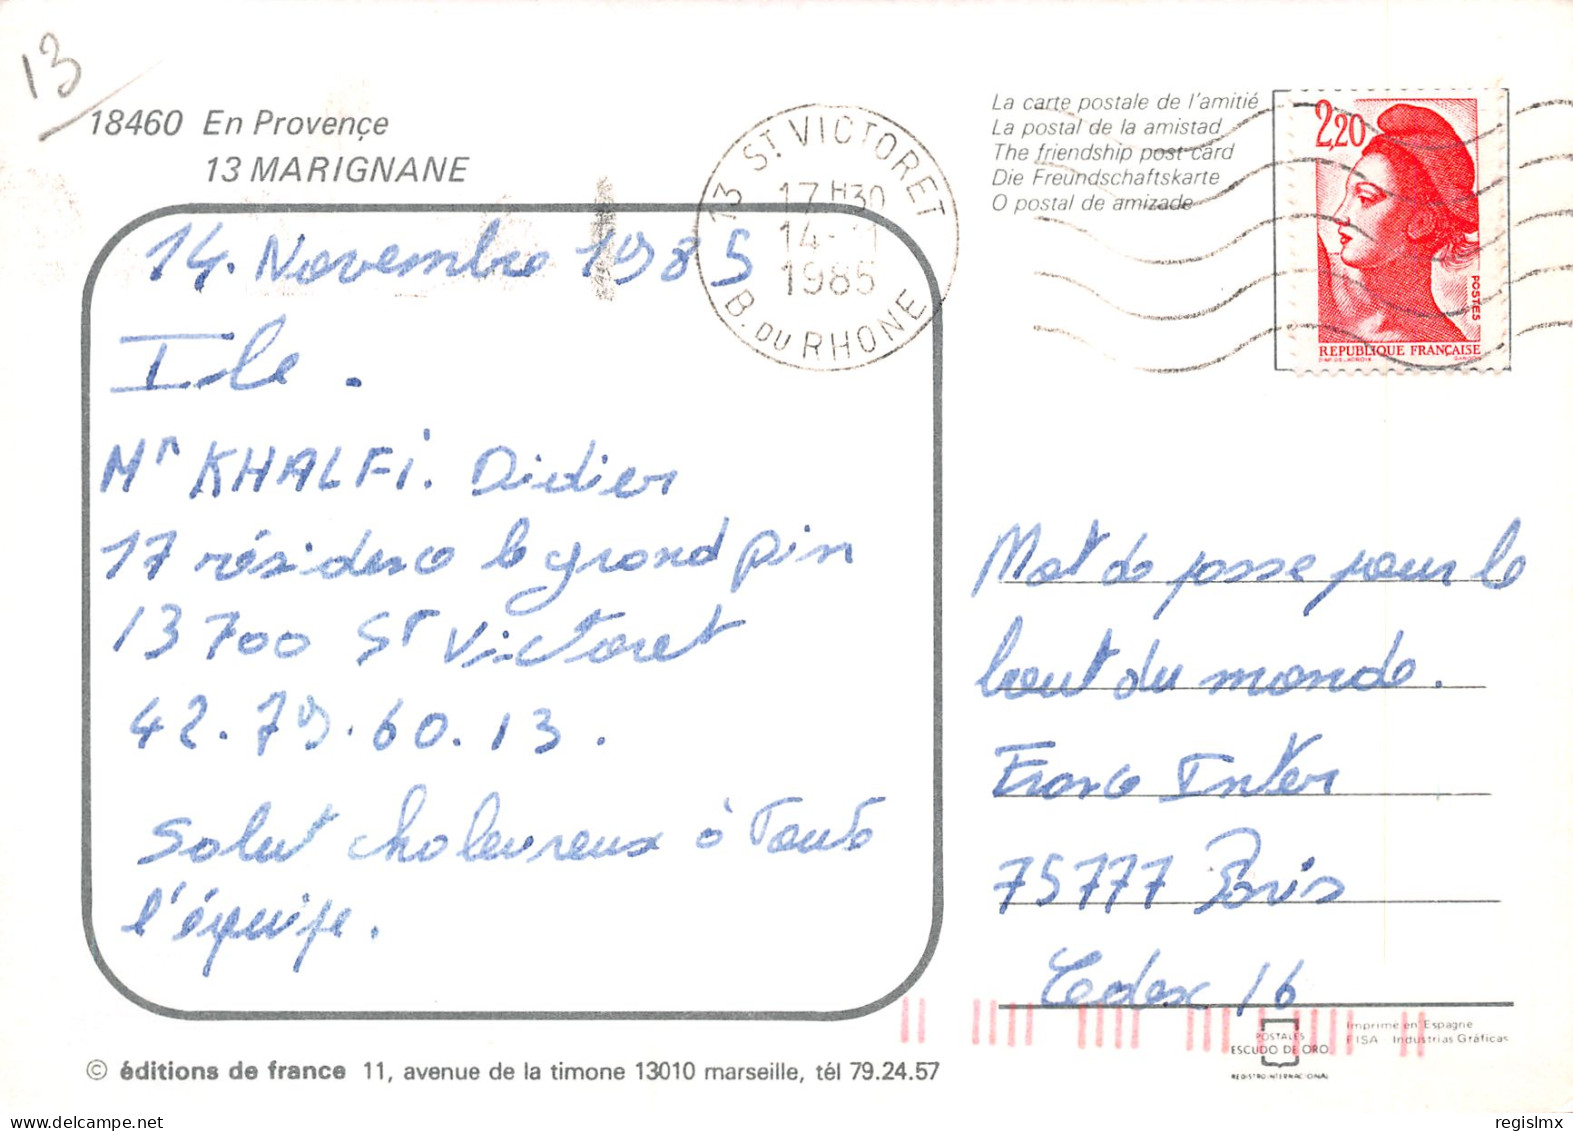 13
18460 En Provençe
13 MARIGNANE
13 ST VICTORET
17 H30
14-
1985
B. DU RHONE
La carte postale de l'amitié
La postal de la amistad
The friendship post card
Die Freundschaftskarte
O postal de amizade
2,20
POSTES
REPUBLIQUE FRANÇAISE
14. Novembre 1985
Isle.
Mr KHALFi. Didier
17 résidence le grand pin
13700 St Victoret
42.79.60.13.
Salut chaleureux à Toute
l'équipe.
Mot de passe pour le
bout du monde.
France Inter
75777 Paris
Cedex 16
© éditions de france 11, avenue de la timone 13010 marseille, tél 79.24.57
POSTALES
ESCUDO DE ORO
REGISTRO INTERNACIONAL
Imprimé en Espagne
FISA Industrias Gráficas
www.delcampe.net
regislmx